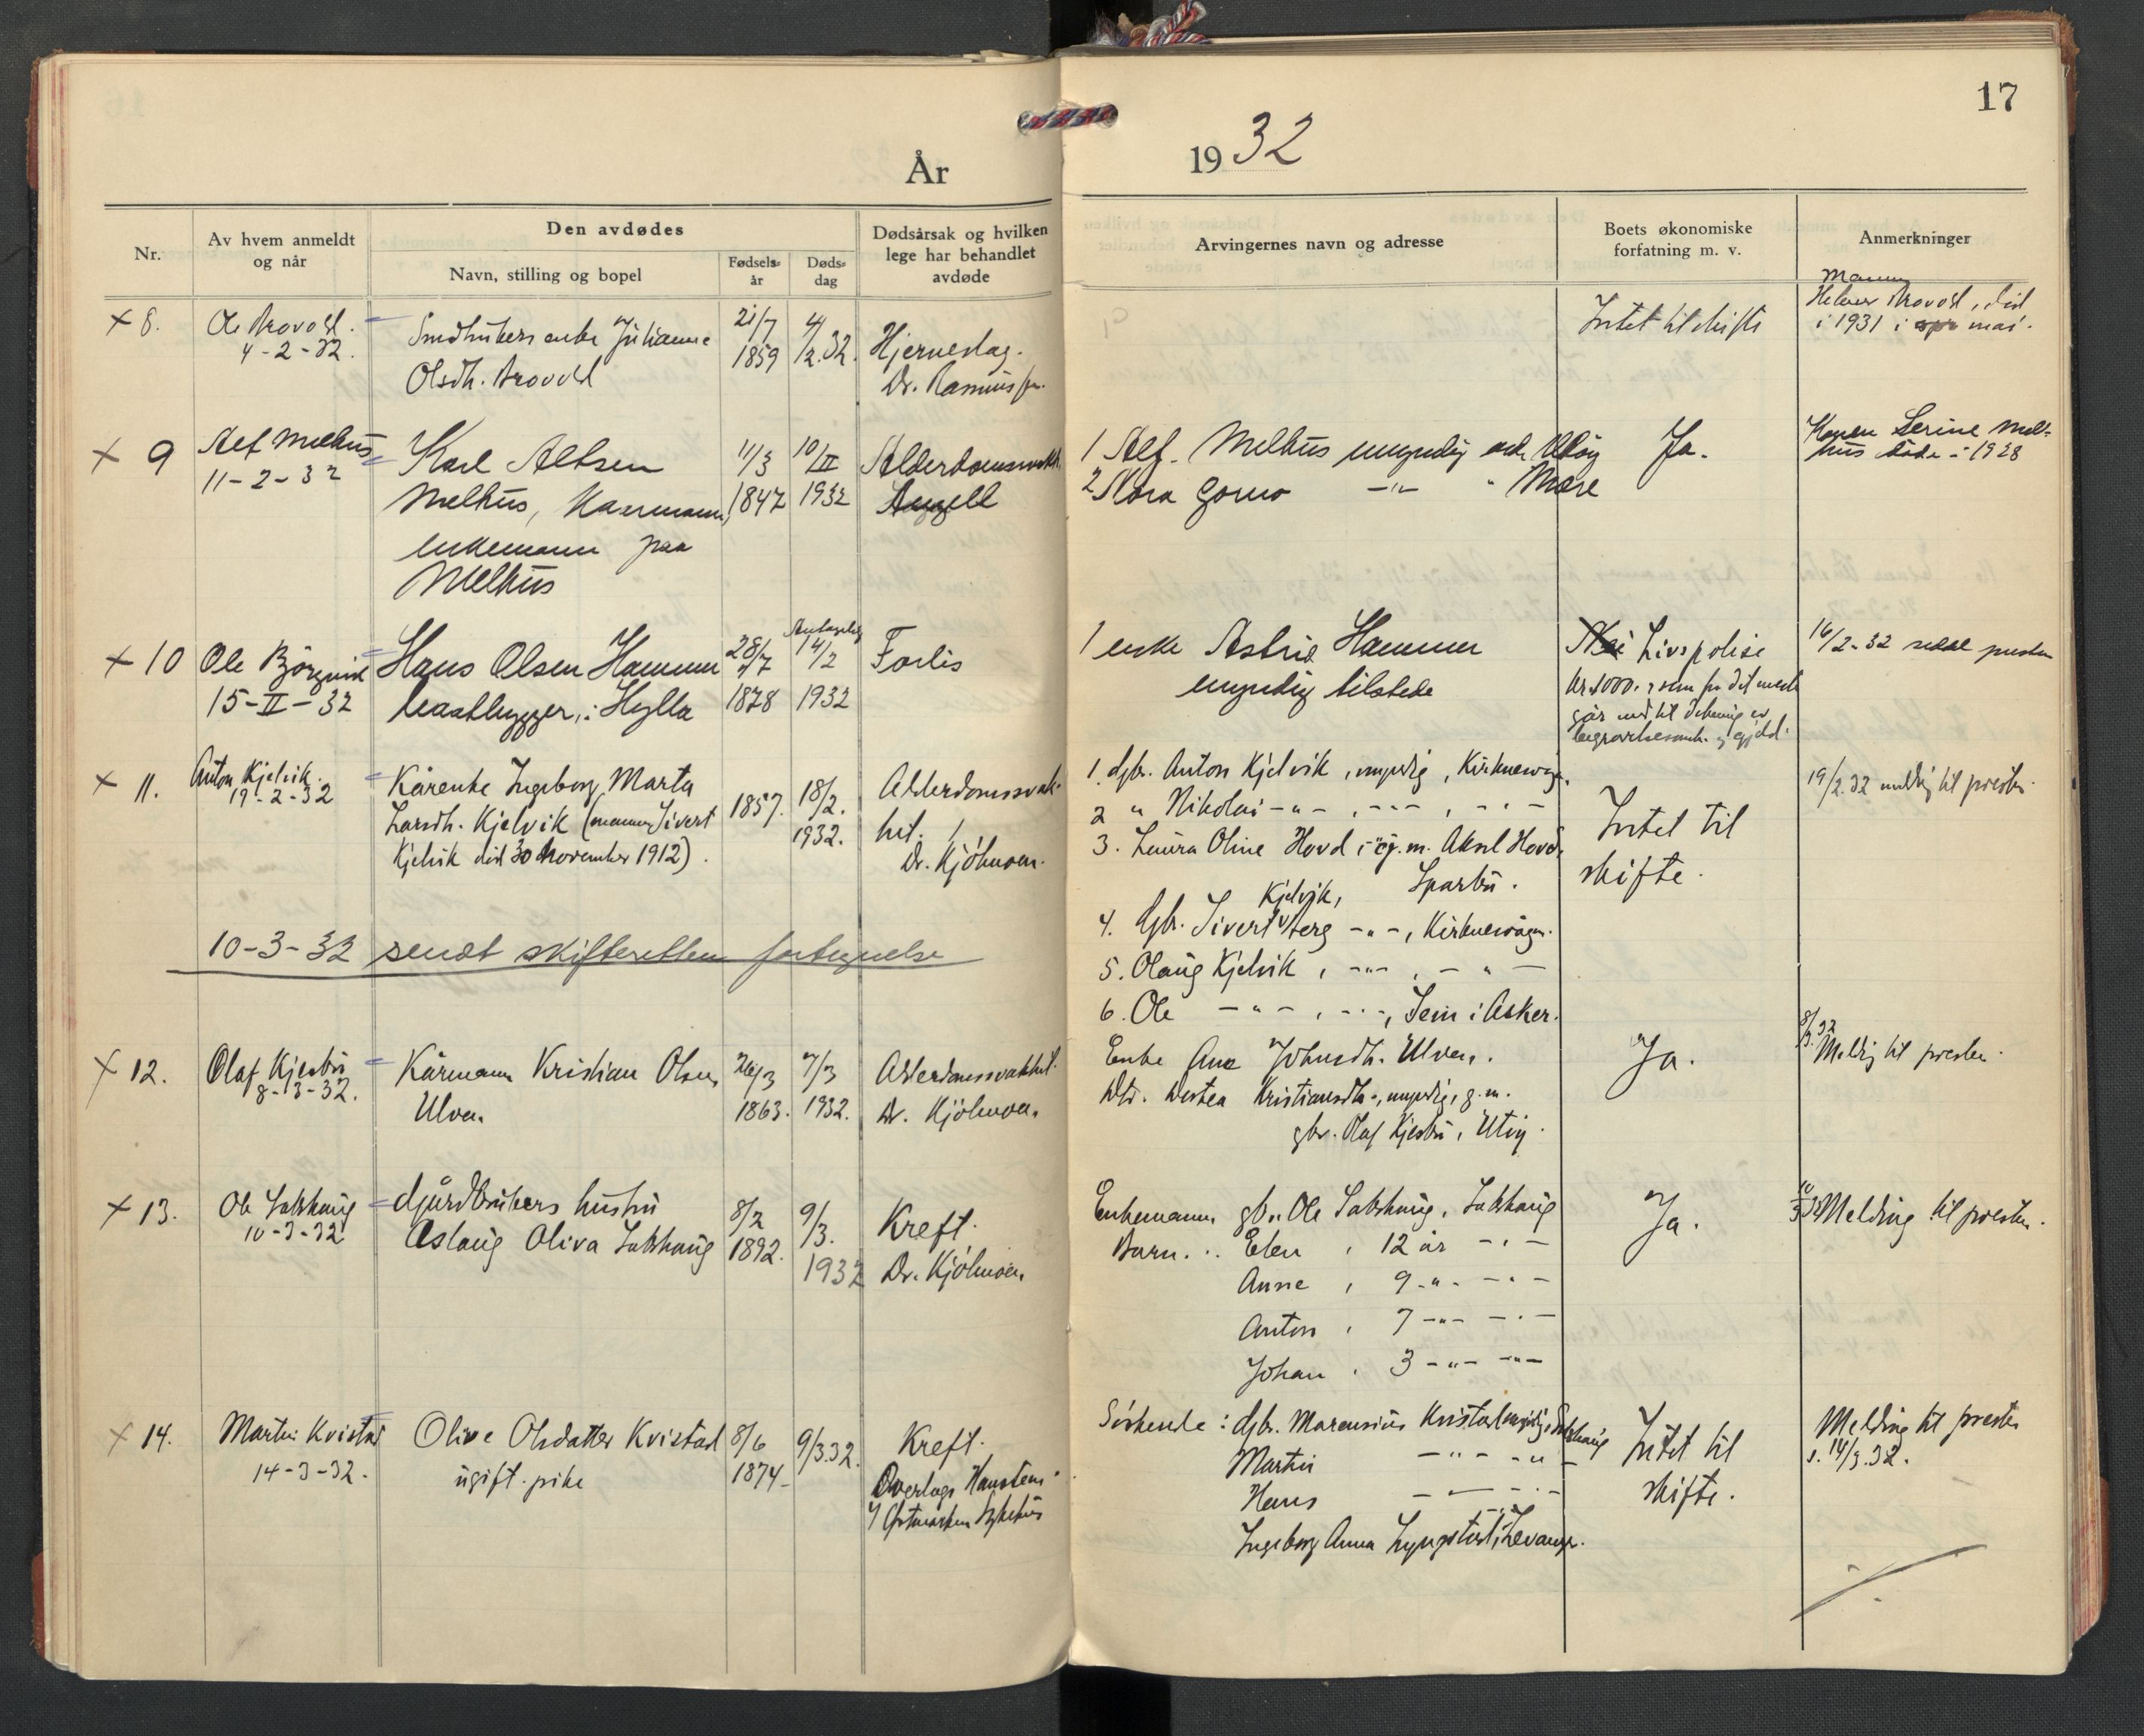 17
År
19 32
Nr.
Av hvem anmeldt
og når
Den avdødes
Navn, stilling og bopel
Fødsels-
år
Døds-
dag
Dødsårsak og hvilken
lege har behandlet
avdøde
Arvingernes navn og adresse
Boets økonomiske
forfatning m. v.
Anmerkninger
+ 8.
Ole
4-2-32.
enke Julianne
Olsdh.
21/7
1859
4/2.32.
Hjerneslag.
Dr.
Intet til skifte
Mannen
død
i 1931 i mai.
+ 9
Alf Melhus
11-2-32
Karl
Melhus,
enkemann paa
Melhus
11/3
1847
10/II
1932
1 Alf. Melhus myndig
2 Gorno -"- " Mære
Ja.
Serine Mel-
hus døde i 1928
+ 10
Ole
15-II-32
Hans Olsen Hammer
i Hylla
28/7
1878
Antagelig
14/2
1932
Forlis
1 enke Astrid Hammer
myndig tilstede
Livspolise
kr. 1000.- som for det meste
går med til dekning av
og gjeld.
16/2-32
+ 11.
Anton Kjelvik.
19-2-32
Kårenke Ingeborg Marta
Larsdh. Kjelvik (mannen Sivert
Kjelvik død 30 november 1912).
1857.
18/2.
1932.
Alderdomssvak-
het.
Dr. Kjölmoen.
1. Gbr. Anton Kjelvik, myndig,
2 " Nikolai -"-, -"-, -"-
3. Laura Oline Hovd, g. m. Aksel Hovd,
Sparbu.
Kjelvik,
4. Gbr. Sivert -"-,
5. Olaug Kjelvik, -"-, -"-
6. Ole -"-, -"-, Sem i Asker.
Intet til
skifte.
19/2.32 melding til presten.
10-3-32 sendt skifteretten fortegnelse
+ 12.
Olaf Kjesbu
8-3-32.
Kårmann Kristian Olsen
Ulven
26/3
1863.
7/3
1932.
Alderdomssvakhet.
Dr. Kjölmoen.
Enke Ane Johnsdh. Ulven.
Kristiansdh., myndig, g. m.
gbr. Olaf Kjesbu,
Ja.
8/3.32
Melding til presten.
+ 13.
Ole Salshaug
10-3-32
Gårdbrukers hustru
Aslaug Oliva Salshaug
8/2
1892.
9/3.
1932
Kreft.
Dr. Kjölmoen
Enkemann gbr. Ole Salshaug, Salshaug
Barn. Elen, 12 år -"-
Anne, 9 -"- -"-
Anton, 7 -"- -"-
Johan, 3 -"- -"-
Ja.
10/3 32 Melding til presten.
+ 14.
Martin Kvistad
14-3-32.
Olive Olsdatter Kvistad
ugift pike
8/6
1874
9/3.32.
Kreft.
Overlege
Östmarken Sykehus
Söskende: Gbr. Marensius Kvistad myndig, Salshaug
Martin -"- -"-
Hans -"- -"-
Ingeborg Anna Lyngstad, Levanger.
Intet til
skifte.
Melding til presten
s. 14/3.32.